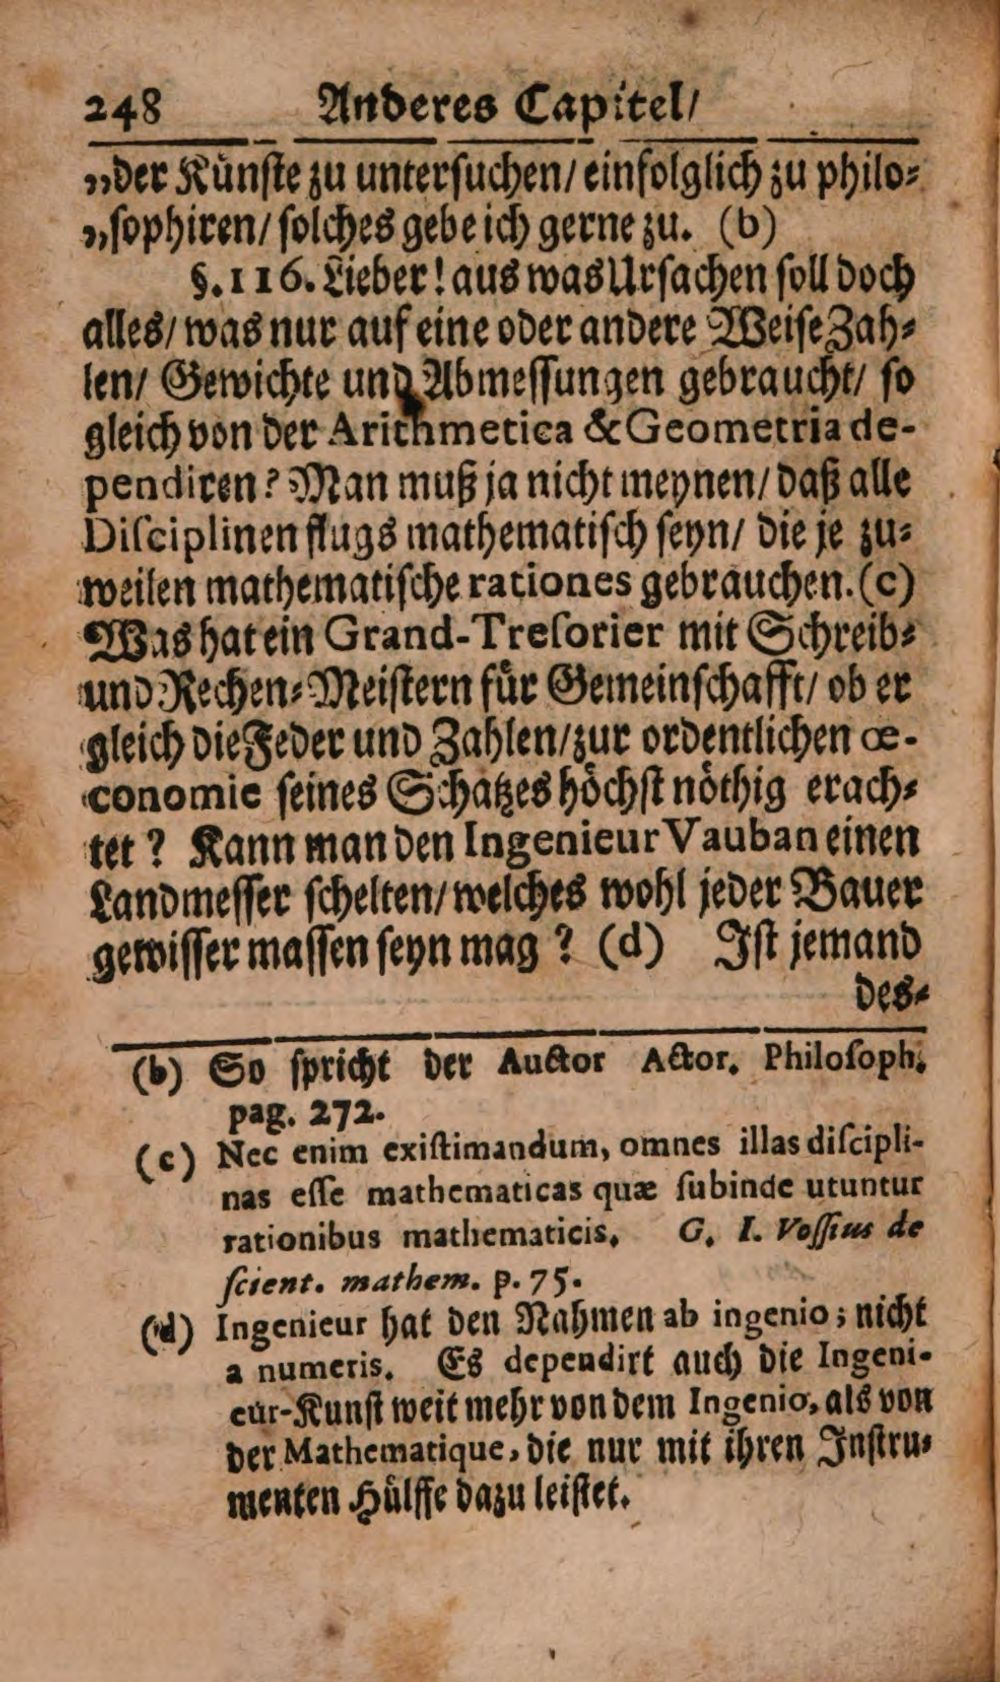 248 Anderes Capitel/
„der Künste zu untersuchen/ einfolglich zu philo-
„sophiren/ solches gebe ich gerne zu. (b)
§. 116. Lieber! aus was Ursachen soll doch
alles/ was nur auf eine oder andere Weise Zah-
len/ Gewichte und Abmessungen gebraucht/ so
gleich von der Arithmetica & Geometria de-
pendiren? Man muß ja nicht meynen/ daß alle
Disciplinen flugs mathematisch seyn/ die je zu-
weilen mathematische rationes gebrauchen. (c)
Was hat ein Grand-Tresorier mit Schreib-
und Rechen-Meistern für Gemeinschafft/ ob er
gleich die Feder und Zahlen/ zur ordentlichen œ-
conomie seines Schatzes höchst nöthig erach-
tet? Kann man den Ingenieur Vauban einen
Landmesser schelten/ welches wohl jeder Bauer
gewisser massen seyn mag? (d) Ist jemand
des-
(b) So spricht der Auctor Actor. Philosoph.
pag. 272.
(c) Nec enim existimandum, omnes illas discipli-
nas esse mathematicas quæ subinde utuntur
rationibus mathematicis. G. I. Vossius de
scient. mathem. p. 75.
(d) Ingenieur hat den Nahmen ab ingenio; nicht
a numeris. Es dependirt auch die Ingeni-
eur-Kunst weit mehr von dem Ingenio, als von
der Mathematique, die nur mit ihren Instru-
menten Hülffe dazu leistet.